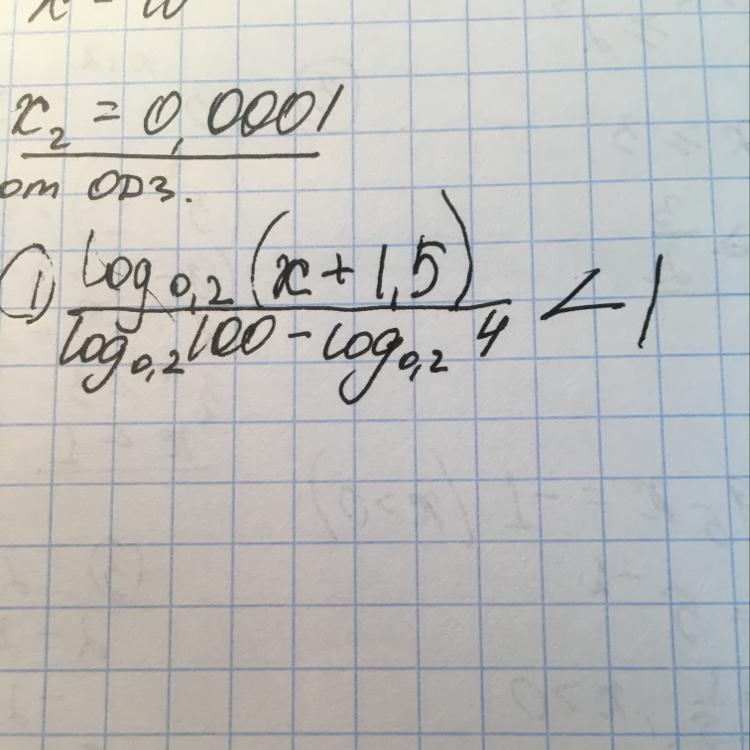 x₂ = 0,0001
от ОДЗ.
① log₀,₂ (x + 1,5) / log₀,₂ 100 - log₀,₂ 4 < 1